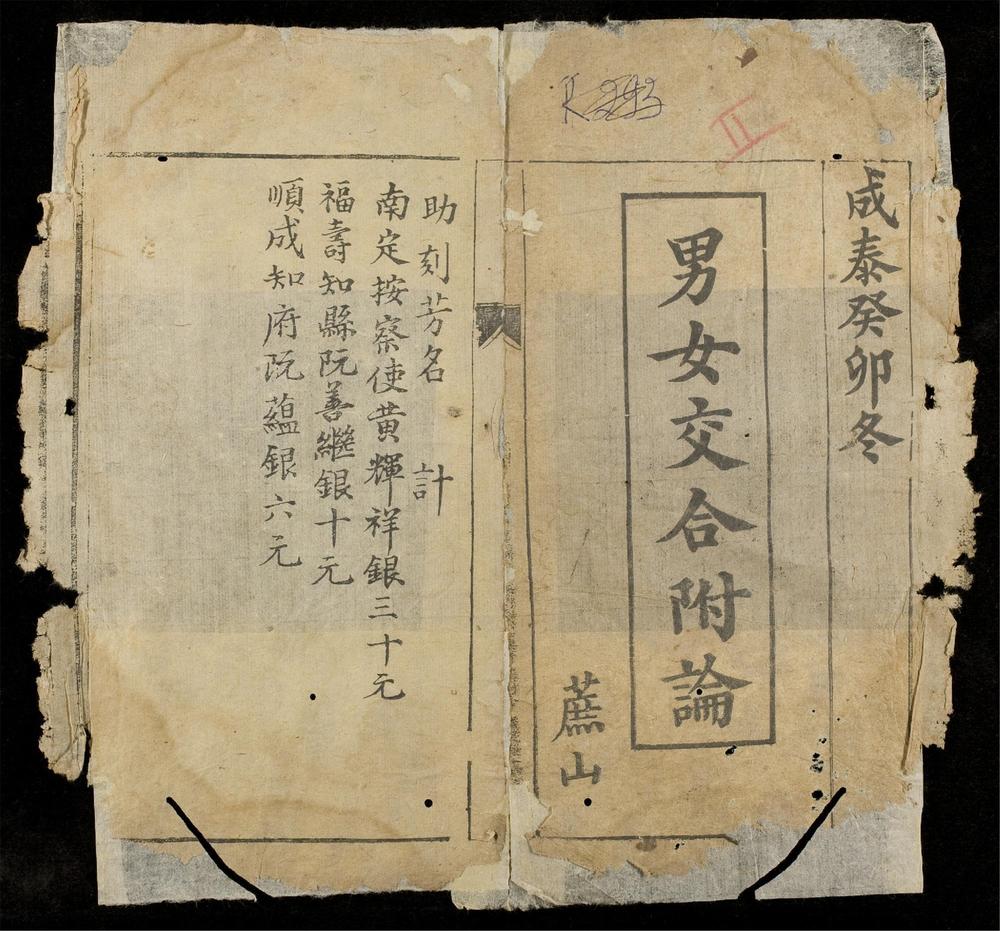 成泰癸卯冬
男女交合附論
蔗山
II
助刻芳名 計
南定按察使黄輝祥銀三十元
福壽知縣阮善繼銀十元
順成知府阮蘊銀六元